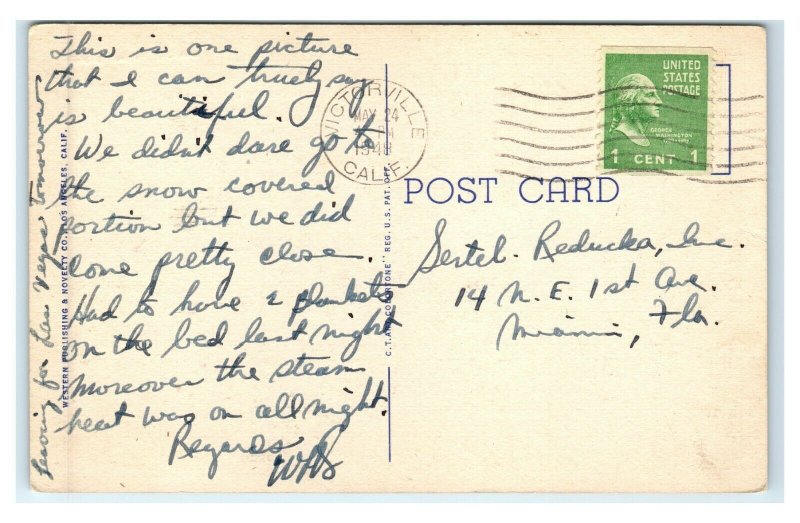 This is one picture
that I can truely say
is beautiful.
We didn't dare go to
the snow covered
portion but we did
come pretty close.
Had to have 2 blankets
on the bed last night
Moreover the steam
heat was on all night.
Regards
Leaving for Las Vegas tomorrow
WESTERN PUBLISHING & NOVELTY CO., LOS ANGELES, CALIF.
VICTORVILLE
MAY 24
PM
CALIF.
UNITED
STATES
POSTAGE
GEORGE
WASHINGTON
1 CENT 1
POST CARD
C.T. ART-COLORTONE" REG. U.S. PAT. OFF.
Sertel. Reducka, Inc.
14 N.E. 1st Ave.
Miami, Fla.